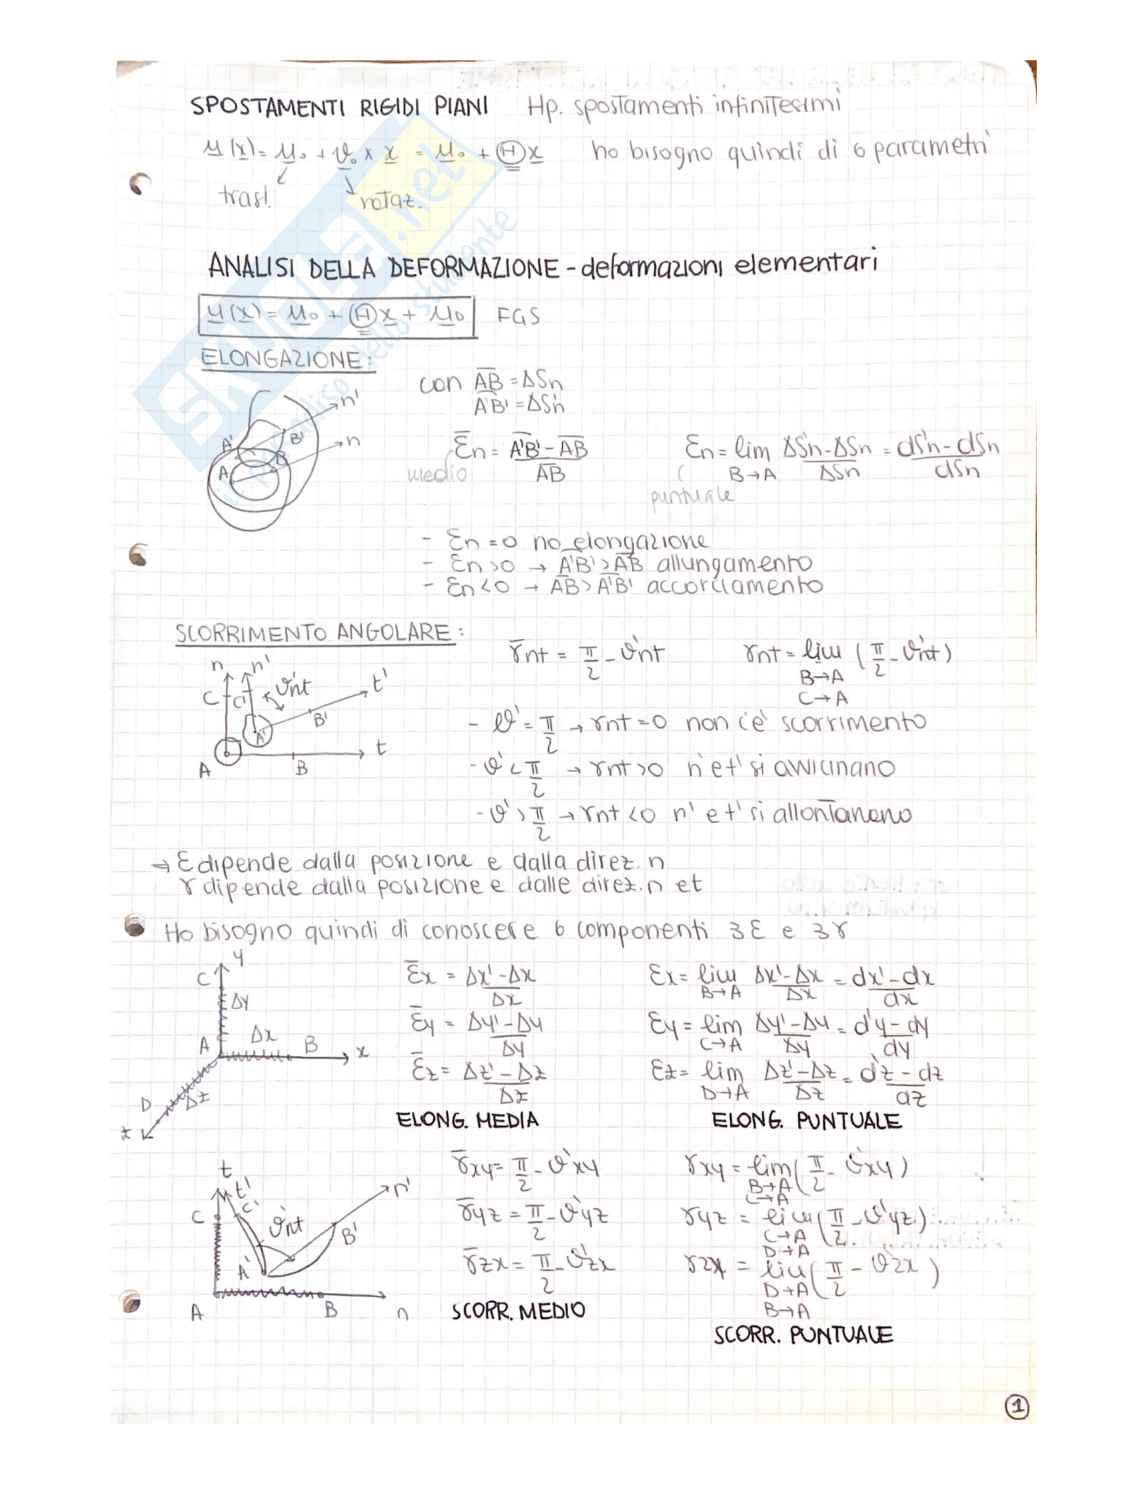 SPOSTAMENTI RIGIDI PIANI Hp. spostamenti infinitesimi
u(x) = u₀ + ϑ₀ × x = u₀ + Θx ho bisogno quindi di 6 parametri
trasl. rotaz.
ANALISI DELLA DEFORMAZIONE - deformazioni elementari
u(x) = u₀ + Θx + u₀ FGS
ELONGAZIONE:
con AB = ΔSn
A'B' = ΔS'n
n' n A' B' A B
ε̄n = (A'B' - AB)/AB εn = lim B→A (ΔS'n - ΔSn)/ΔSn = (dS'n - dSn)/dSn
medio puntuale
- εn = 0 no elongazione
- εn > 0 → A'B' > AB allungamento
- εn < 0 → AB > A'B' accorciamento
SCORRIMENTO ANGOLARE:
n n' C C' ϑ'nt t' B' A' t A B
γ̄nt = π/2 - ϑ'nt γnt = lim B→A C→A (π/2 - ϑ'nt)
- ϑ' = π/2 → γnt = 0 non c'è scorrimento
- ϑ' < π/2 → γnt > 0 n' e t' si avvicinano
- ϑ' > π/2 → γnt < 0 n' e t' si allontanano
→ ε dipende dalla posizione e dalla direz. n
γ dipende dalla posizione e dalle direz. n e t
Ho bisogno quindi di conoscere 6 componenti 3ε e 3γ
y C Δy A Δx B x D Δz z
ε̄x = (Δx' - Δx)/Δx εx = lim B→A (Δx' - Δx)/Δx = (dx' - dx)/dx
ε̄y = (Δy' - Δy)/Δy εy = lim C→A (Δy' - Δy)/Δy = (d'y - dy)/dy
ε̄z = (Δz' - Δz)/Δz εz = lim D→A (Δz' - Δz)/Δz = (d'z - dz)/dz
ELONG. MEDIA ELONG. PUNTUALE
t t' C C' ϑ'nt n' B' A' A B n
γ̄xy = π/2 - ϑ'xy γxy = lim B→A C→A (π/2 - ϑ'xy)
γ̄yz = π/2 - ϑ'yz γyz = lim C→A D→A (π/2 - ϑ'yz)
γ̄zx = π/2 - ϑ'zx γzx = lim D→A B→A (π/2 - ϑ'zx)
SCORR. MEDIO
SCORR. PUNTUALE
1
SKUOLA.net